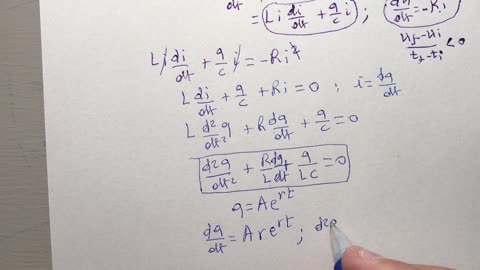 dt
= L i di/dt + q/c i ; du/dt = -Ri
uf - ui / tf - ti < 0
L i di/dt + q/c i = -Ri²
L di/dt + q/c + Ri = 0 ; i = dq/dt
L d²q/dt² + R dq/dt + q/c = 0
d²q/dt² + R/L dq/dt + q/LC = 0
q = Ae^rt
dq/dt = A r e^rt ; d²q